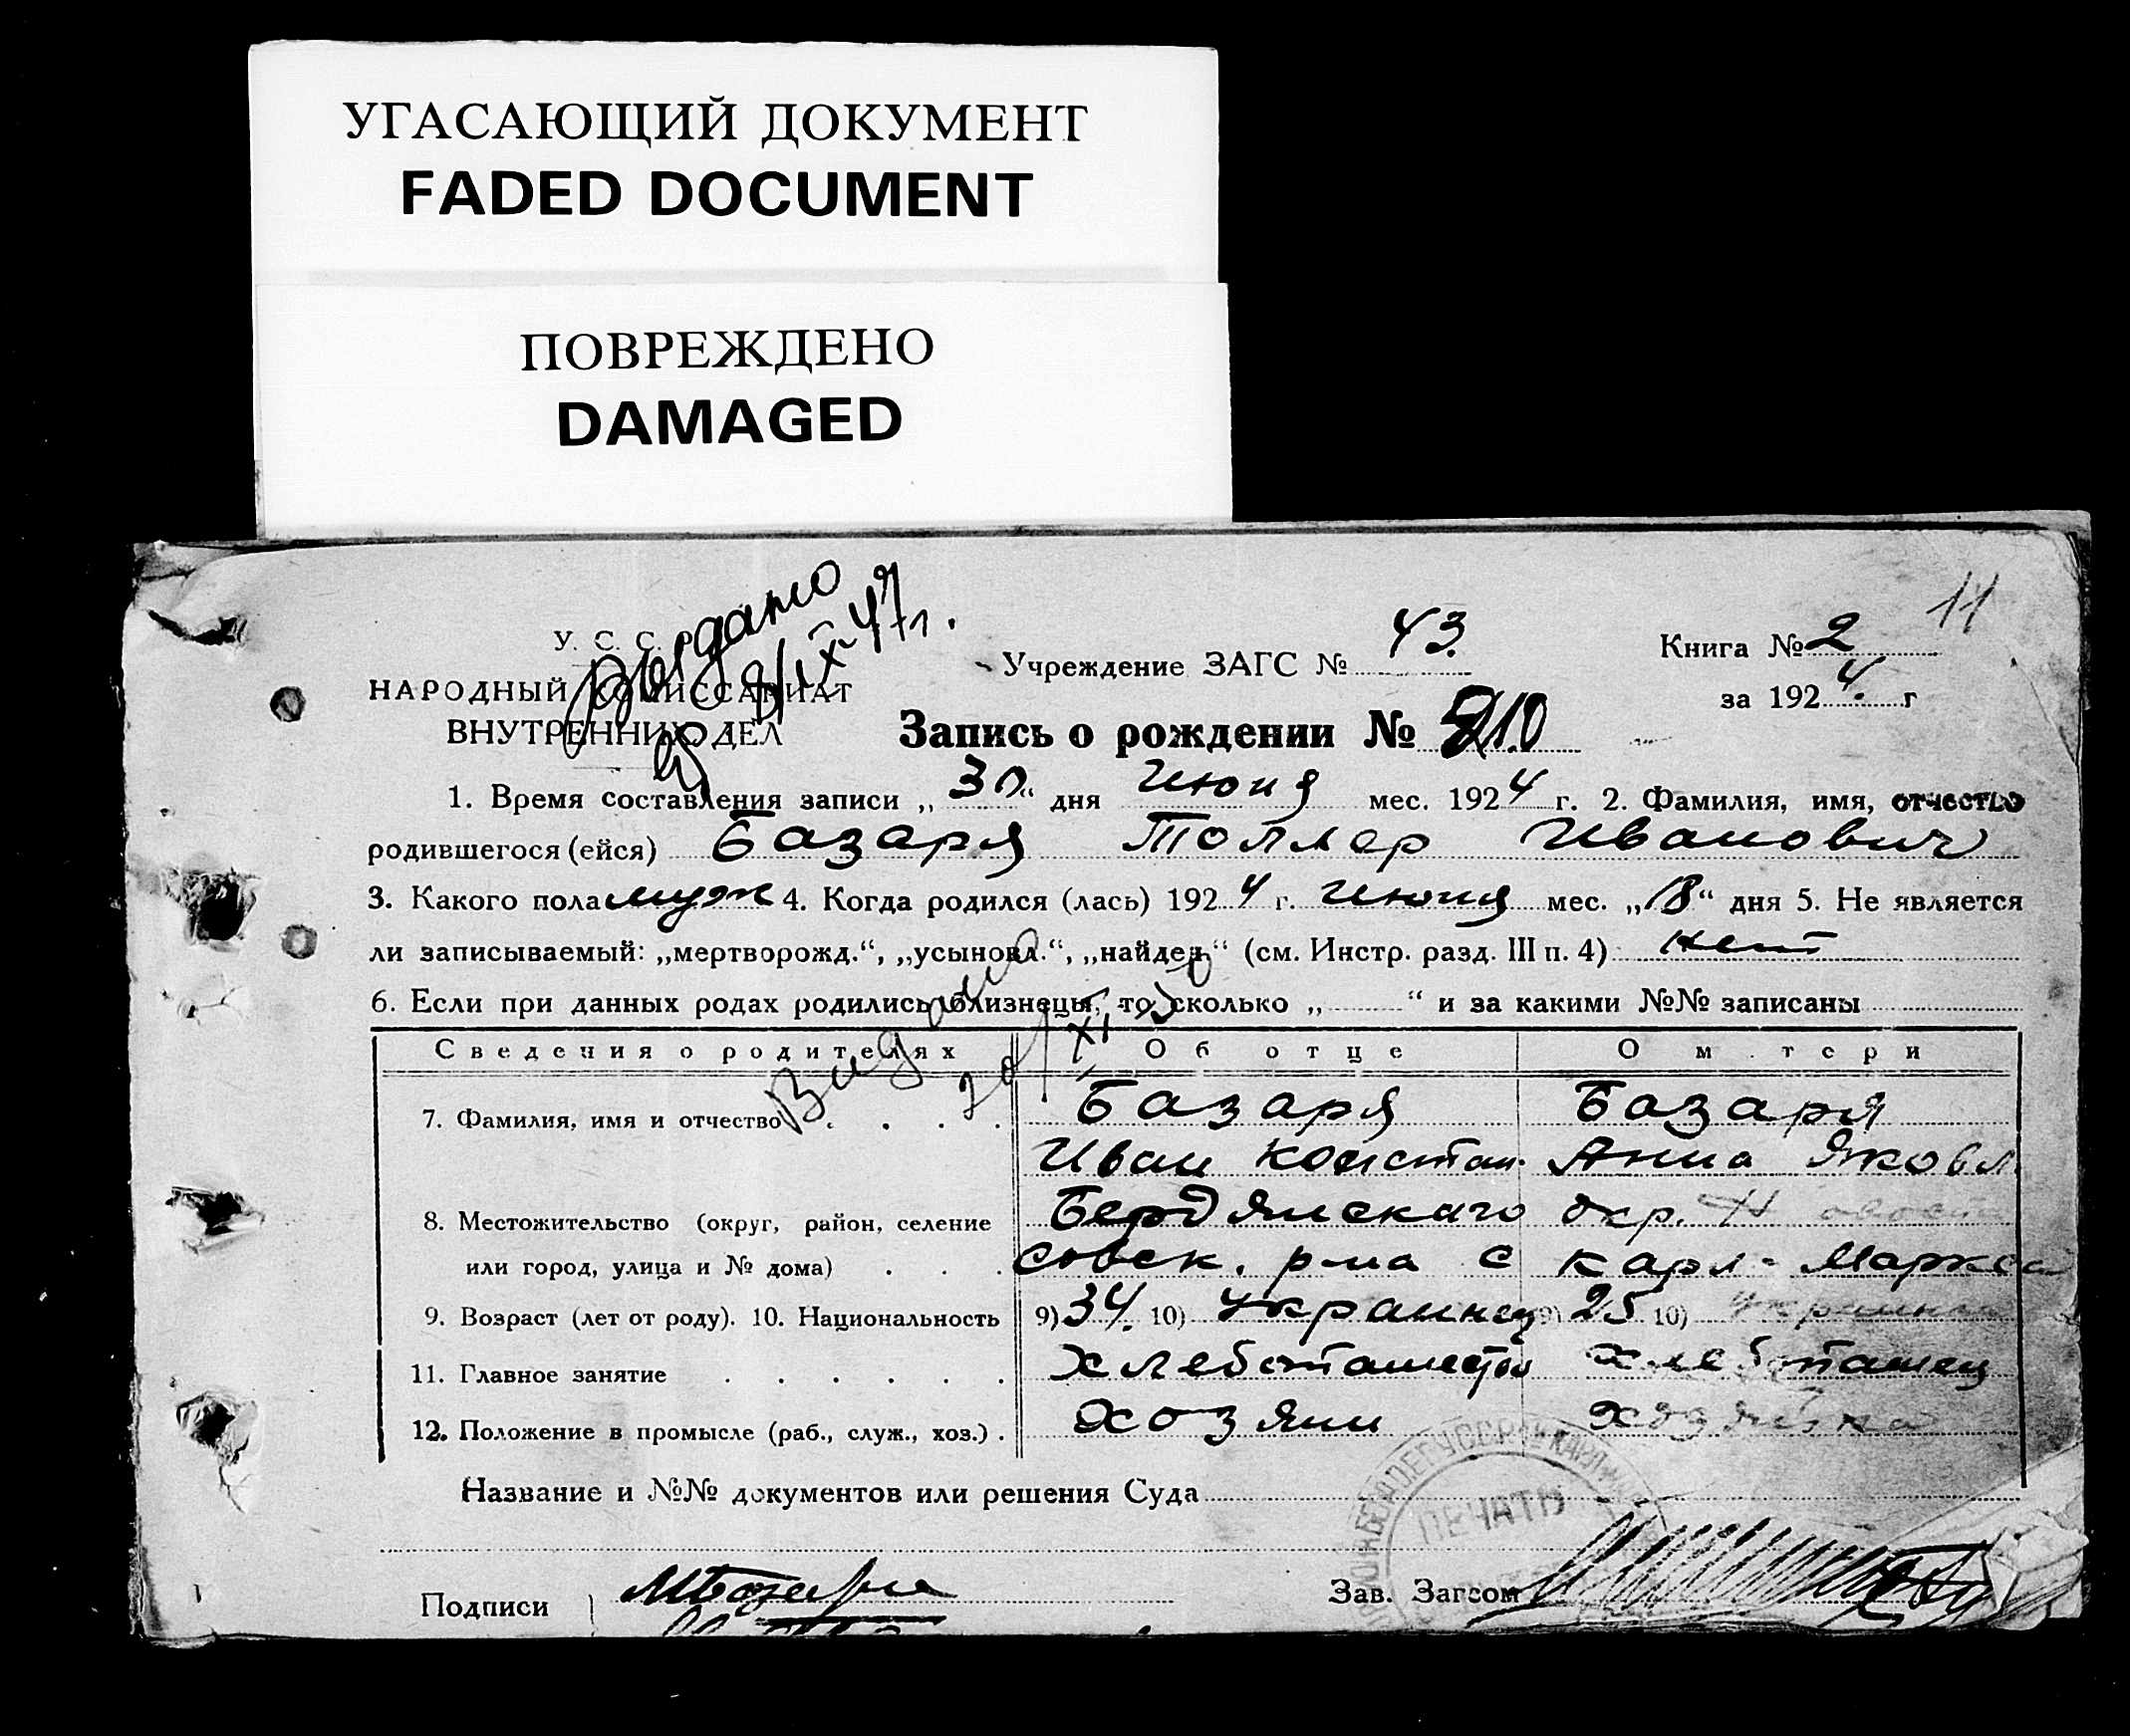 УГАСАЮЩИЙ ДОКУМЕНТ
FADED DOCUMENT
ПОВРЕЖДЕНО
DAMAGED
11
выдано
У. С. С. Р.
НАРОДНЫЙ КОМИССАРИАТ
ВНУТРЕННИХ ДЕЛ
Учреждение ЗАГС № 43.
Книга № 2
за 1924. г
Запись о рождении № 210
1. Время составления записи „30“ дня Июня мес. 1924 г. 2. Фамилия, имя, отчество
родившегося (ейся) Базаря Толлер Иванович
3. Какого пола муж 4. Когда родился (лась) 1924 г. Июня мес. „18“ дня 5. Не является
ли записываемый: „мертворожд.“, „усыновл.“, „найден“ (см. Инстр. разд. III п. 4) нет
6. Если при данных родах родились близнецы, то сколько „ “ и за какими №№ записаны
Сведения о родителях Об отце О м тери
7. Фамилия, имя и отчество Базаря Базаря
Иван Констан. Анна Яковл.
8. Местожительство (округ, район, селение Бердянскаго окр.
или город, улица и № дома) совск. р-на с Карл-Маркса
9. Возраст (лет от роду). 10. Национальность 9) 34. 10) Украинец 9) 25 10)
11. Главное занятие хлебопашество хлебопашец
12. Положение в промысле (раб., служ., хоз.) хозяин хозяйка
Название и №№ документов или решения Суда
ПЕЧАТЬ
Подписи Зав. Загсом